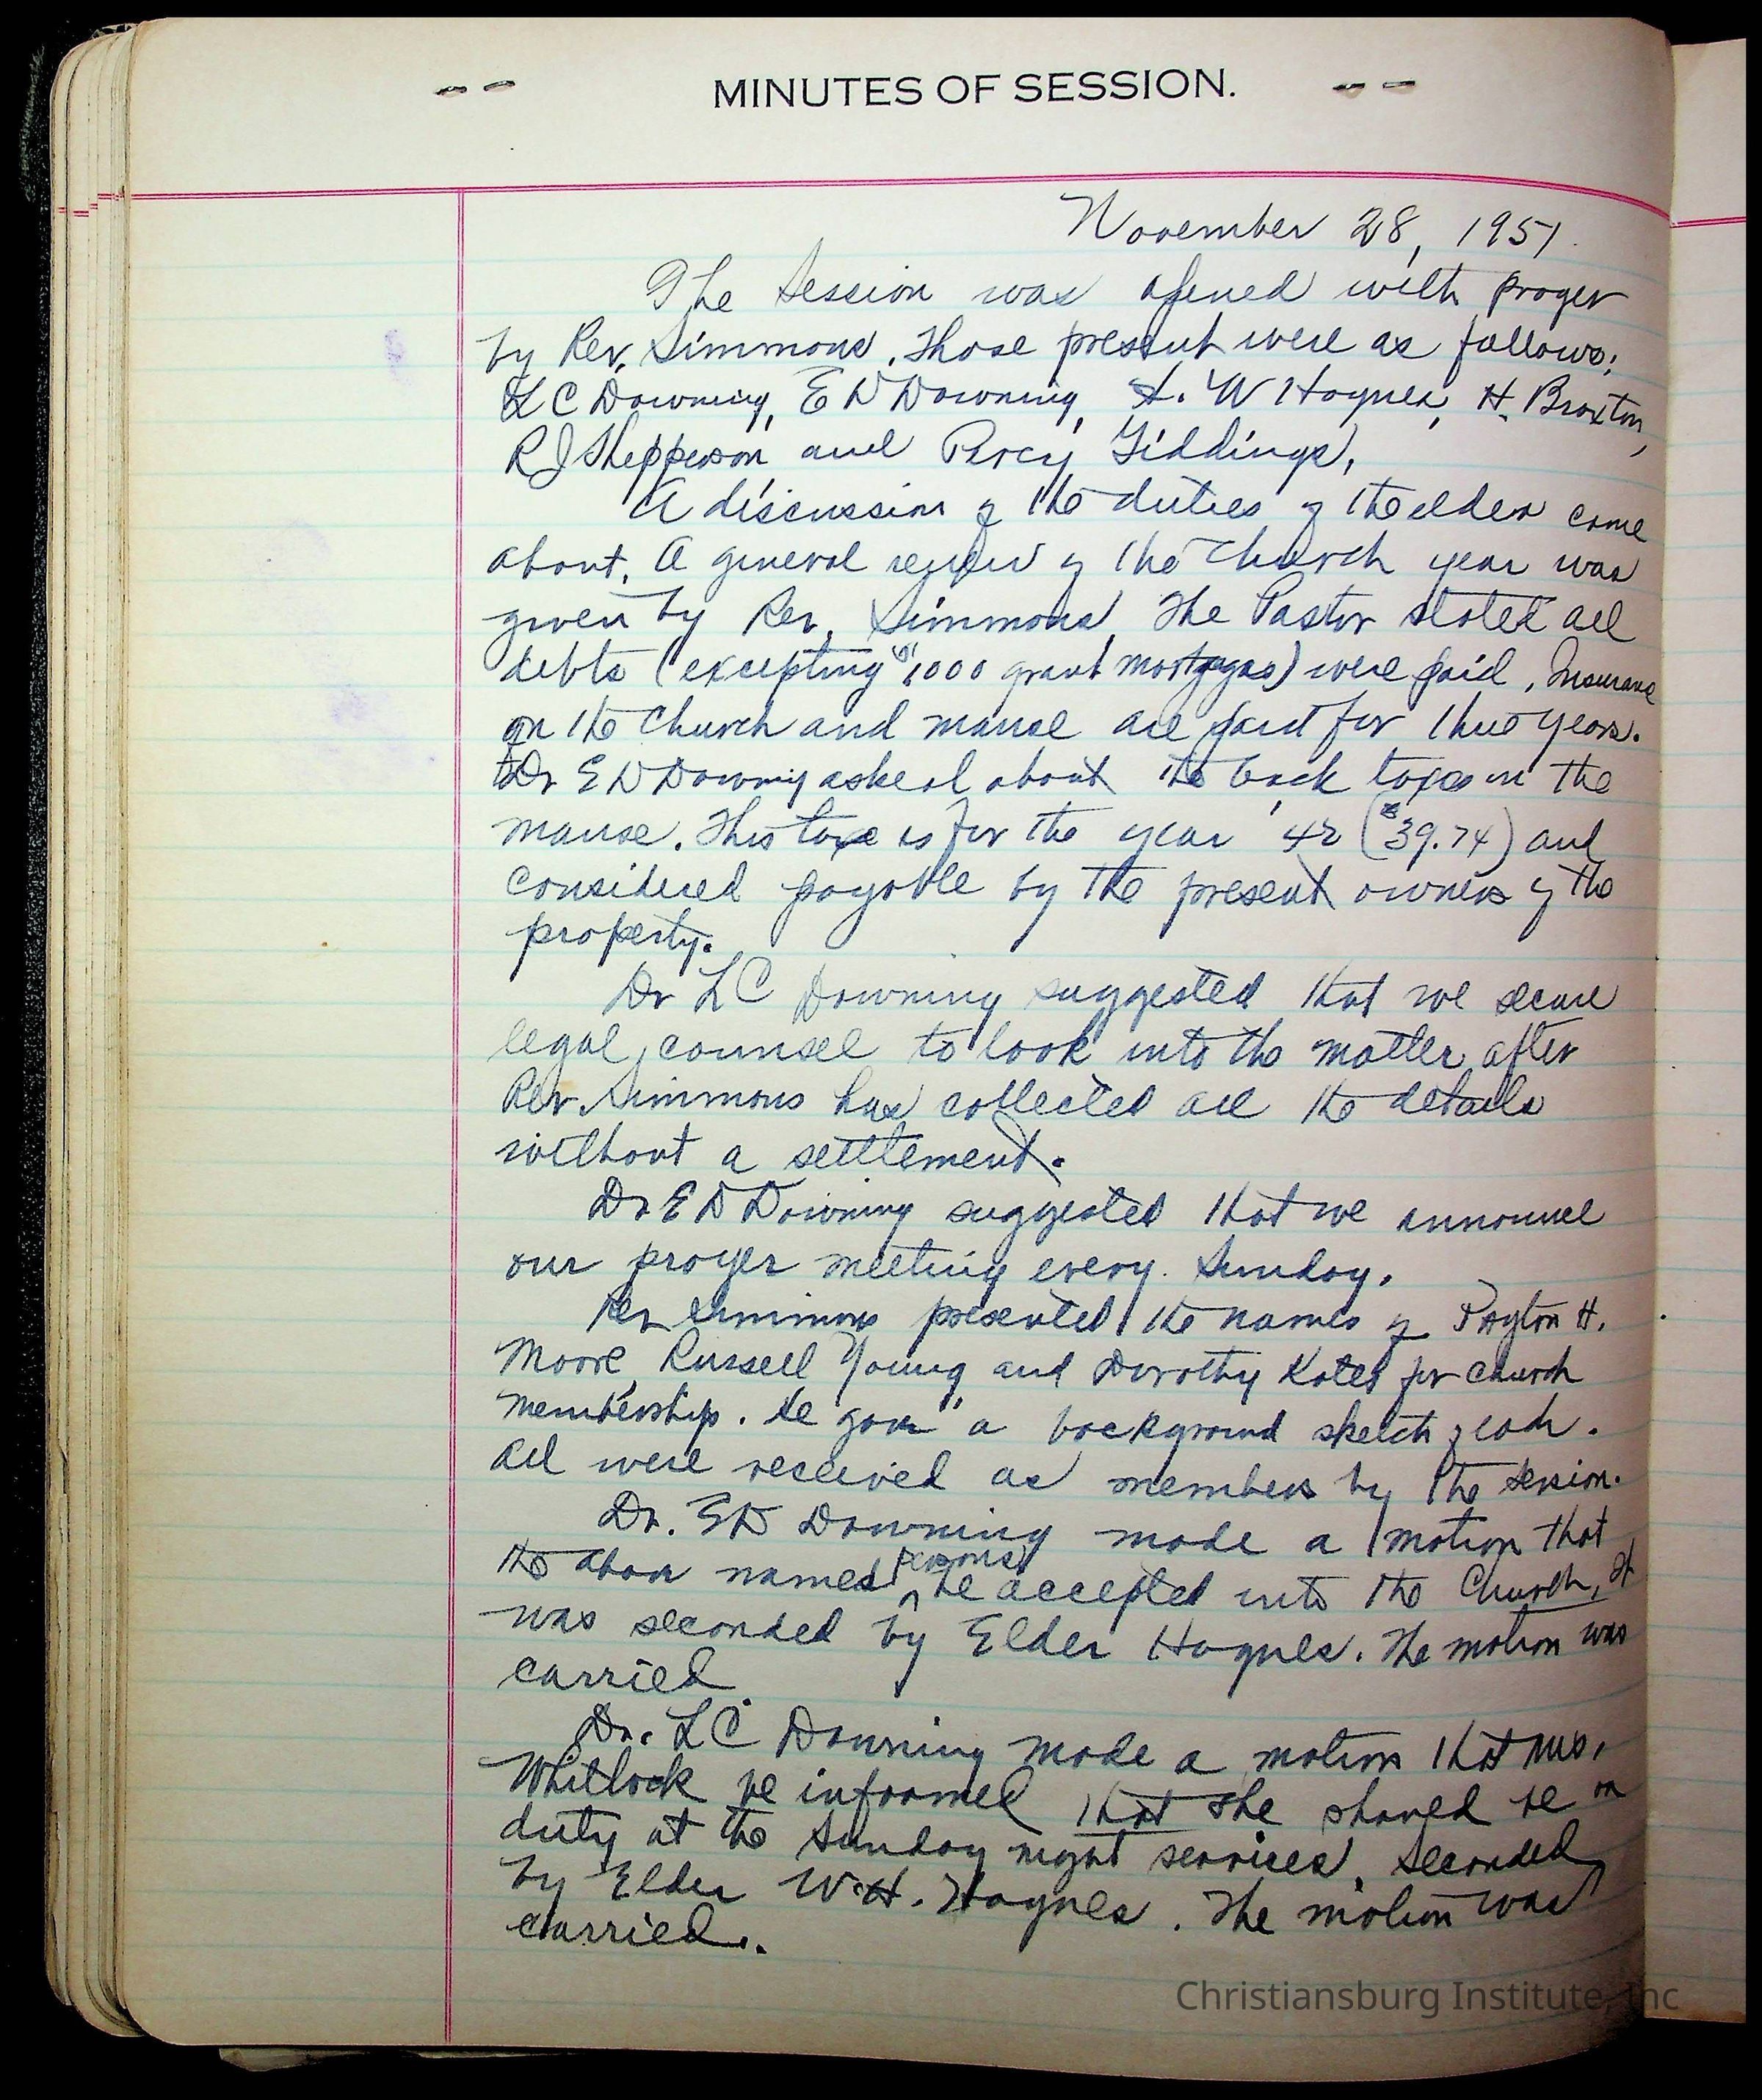 MINUTES OF SESSION.
November 28, 1951.
The Session was opened with prayer
by Rev. Simmons. Those present were as follows:
L C Downing, E D Downing, W Haynes, H. Braxton,
R J Shepperson, and Percy Giddings.
A discussion of the duties of the elder come
about. A general review of the Church year was
given by Rev. Simmons. The Pastor stated all
debts (excepting $1000 grant mortgage) were paid. Insurance
on the Church and manse are paid for three years.
Dr E D Downing asked about the back taxes on the
manse. This taxe is for the year '42 ($39.74) and
considered payable by the present owners of the
property.
Dr L C Downing suggested that we secure
legal counsel to look into the matter after
Rev. Simmons has collected all the details
without a settlement.
Dr E D Downing suggested that we announce
our prayer meeting every Sunday.
Rev Simmons presented the names of Payton H.
Moore, Russell Young and Dorothy Kates for church
membership. He gave a background sketch of each.
All were received as members by the session.
Dr. E D Downing made a motion that
the above named persons be accepted into the Church. It
was seconded by Elder Haynes. The motion was
carried
Dr. L C Downing made a motion that Mrs.
Whitlock be informed that she should be on
duty at the Sunday night services. Seconded
by Elder W. H. Haynes. The motion was
carried.
Christiansburg Institute, Inc